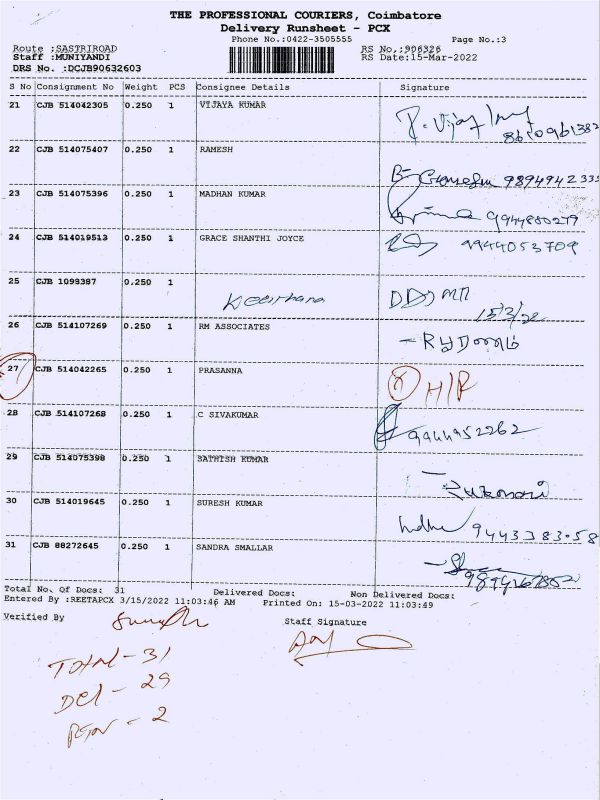 THE PROFESSIONAL COURIERS, Coimbatore
Delivery Runsheet - PCX
Phone No.:0422-3505555
Page No.:3
Route :SASTRIROAD
RS No.:906326
Staff :MUNIYANDI
RS Date:15-Mar-2022
DRS No. :DCJB90632603
S No Consignment No Weight PCS Consignee Details Signature
21 CJB 514042305 0.250 1 VIJAYA KUMAR
22 CJB 514075407 0.250 1 RAMESH
9894942333
23 CJB 514075396 0.250 1 MADHAN KUMAR
9944880279
24 CJB 514019513 0.250 1 GRACE SHANTHI JOYCE 9944053709
25 CJB 1099387 0.250 1
Keerthana
15/3/22
26 CJB 514107269 0.250 1 RM ASSOCIATES
27 CJB 514042265 0.250 1 PRASANNA
28 CJB 514107268 0.250 1 C SIVAKUMAR
9944952262
29 CJB 514075398 0.250 1 SATHISH KUMAR
30 CJB 514019645 0.250 1 SURESH KUMAR
31 CJB 88272645 0.250 1 SANDRA SMALLAR
Total No. Of Docs: 31 Delivered Docs: Non Delivered Docs:
Entered By :REETAPCX 3/15/2022 11:03:46 AM Printed On: 15-03-2022 11:03:49
Verified By Staff Signature
TOTAL - 31
Del - 29
- 2